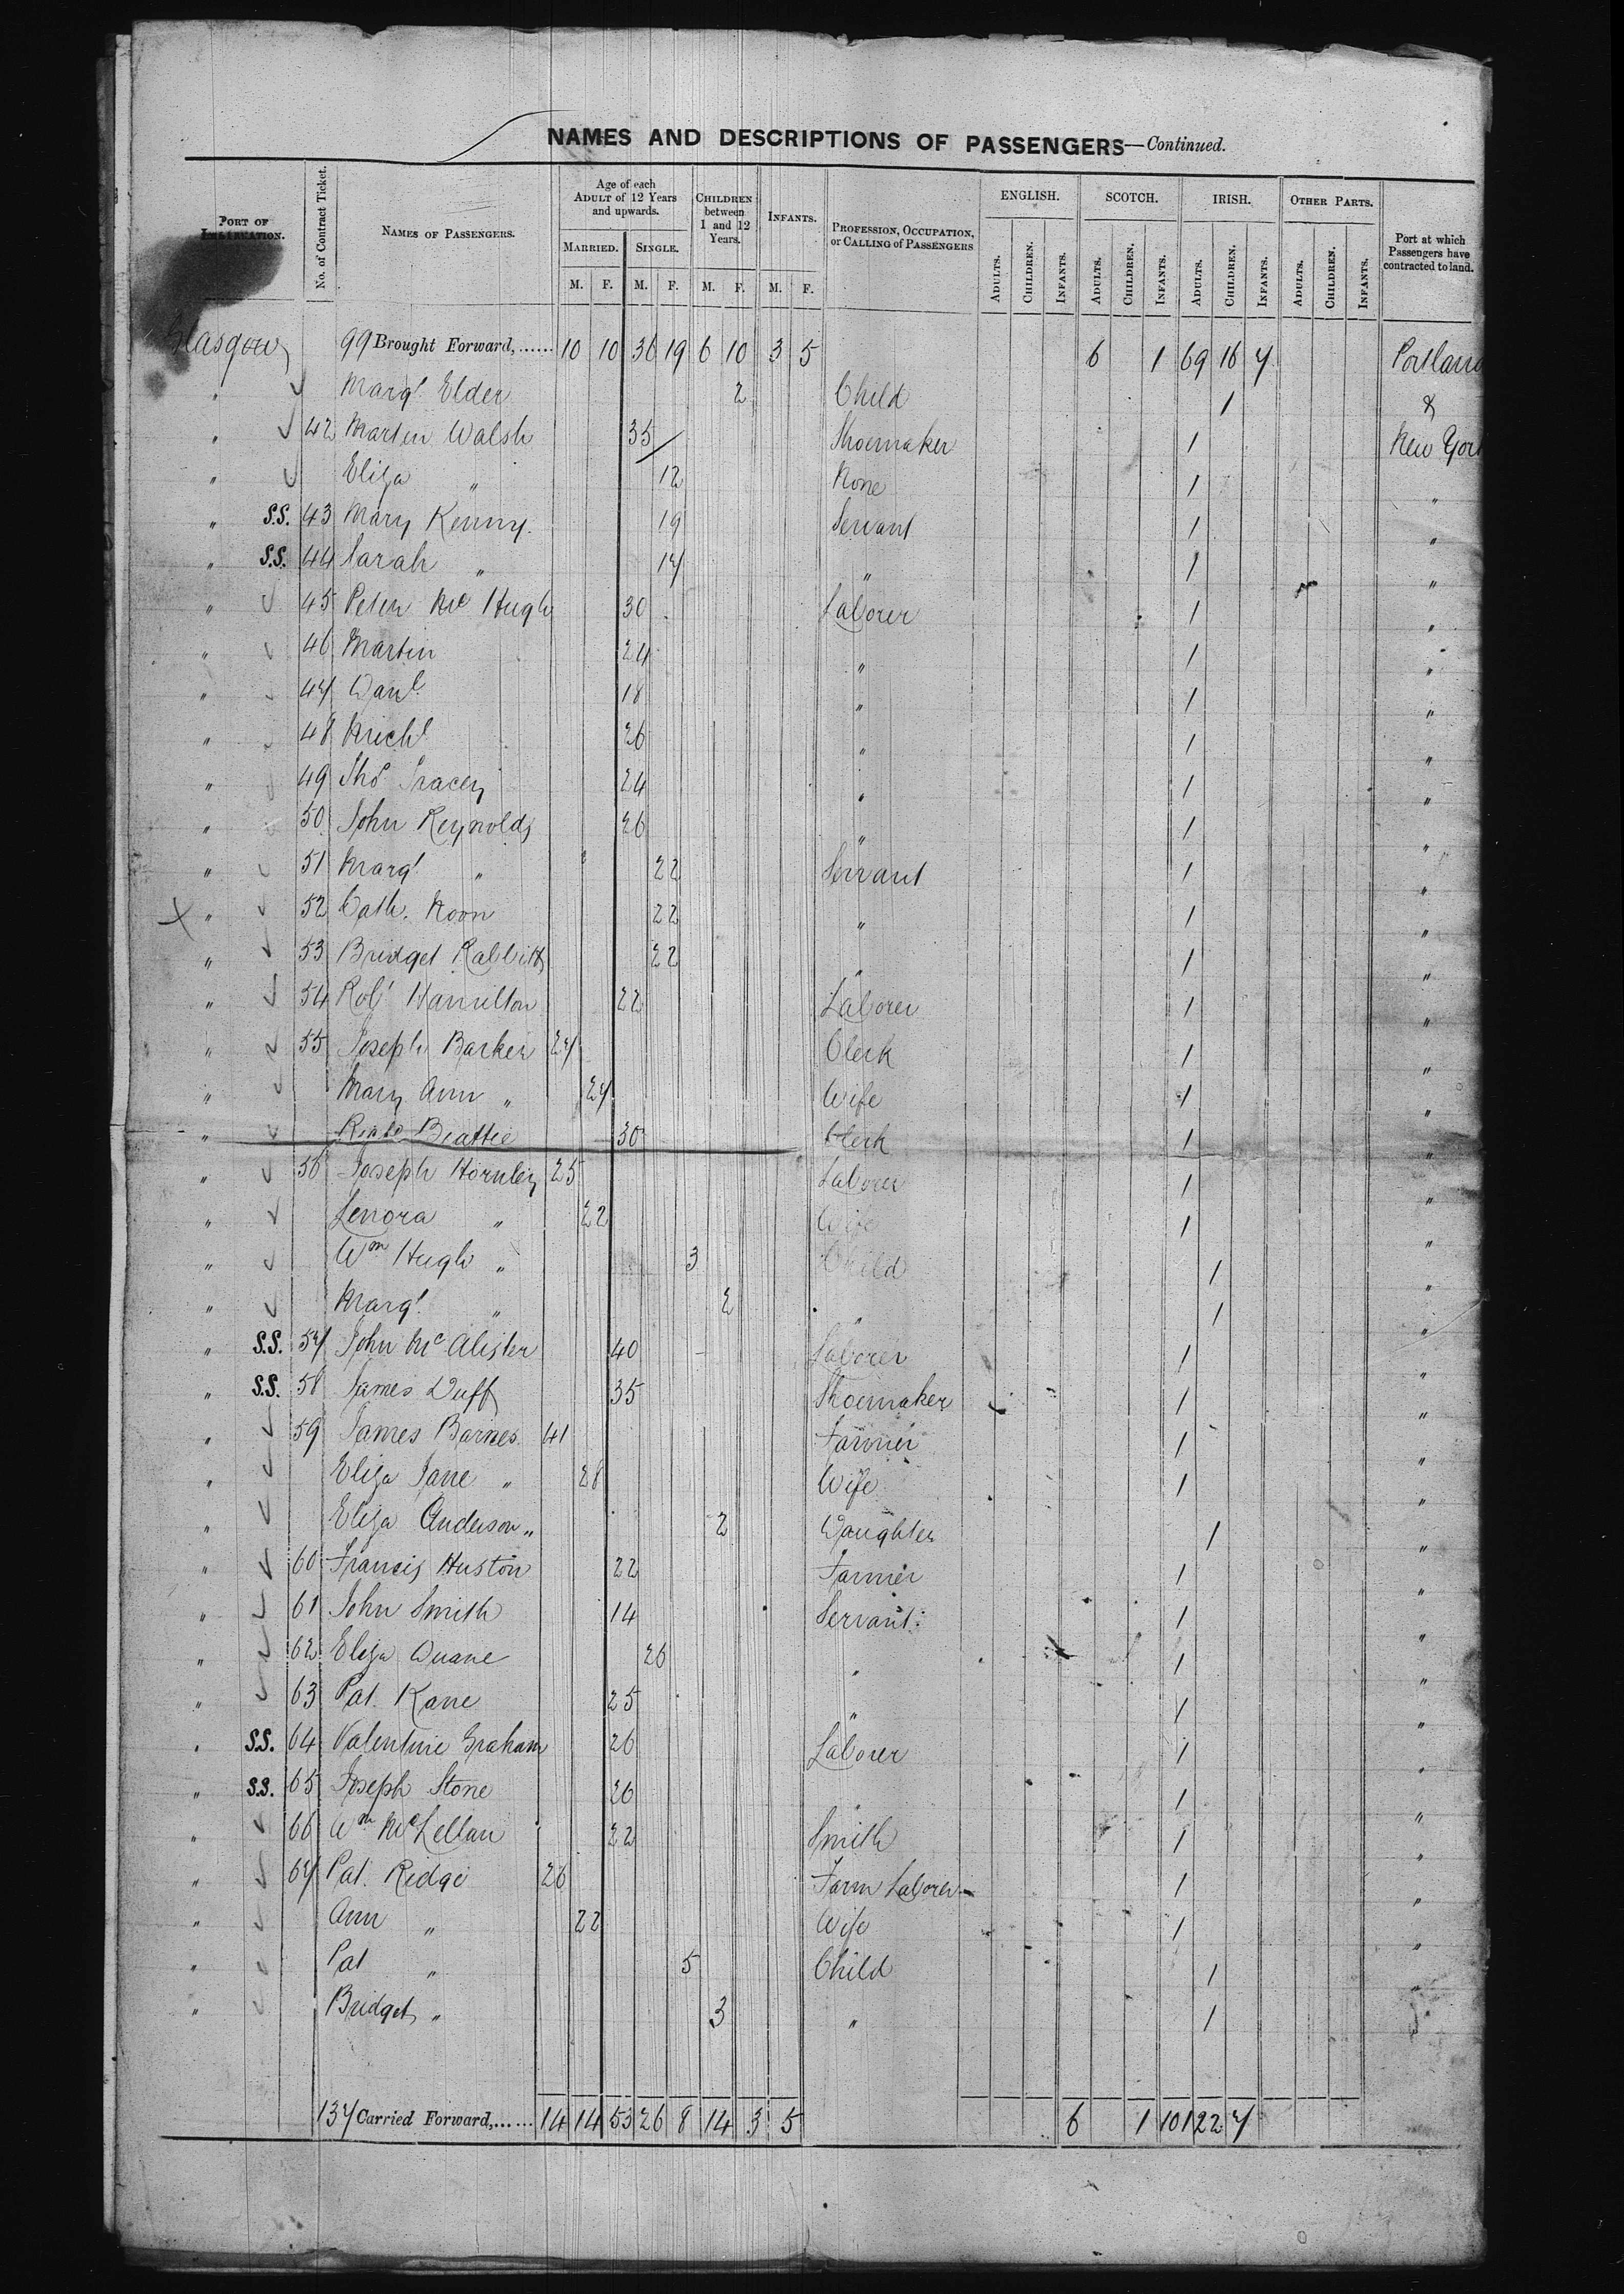 NAMES AND DESCRIPTIONS OF PASSENGERS—Continued.
PORT OF EMBARKATION. No. of Contract Ticket. NAMES OF PASSENGERS. Age of each ADULT of 12 Years and upwards. MARRIED. M. F. SINGLE. M. F. CHILDREN between 1 and 12 Years. M. F. INFANTS. M. F. PROFESSION, OCCUPATION, or CALLING of PASSENGERS ENGLISH. ADULTS. CHILDREN. INFANTS. SCOTCH. ADULTS. CHILDREN. INFANTS. IRISH. ADULTS. CHILDREN. INFANTS. OTHER PARTS. ADULTS. CHILDREN. INFANTS. Port at which Passengers have contracted to land.
Glasgow 99 Brought Forward,...... 10 10 36 19 6 10 3 5 6 1 69 16 7 Portland
" Margt. Elder 2 Child 1 &
" 42 Martin Walsh 35 Shoemaker 1 New York
" Eliza " 12 None 1 "
" S.S. 43 Mary Kenny. 19 Servant 1 "
" S.S. 44 Sarah " 17 " 1 "
" 45 Peter Mc Hugh 30 Laborer 1 "
" 46 Martin 24 " 1 "
" 47 Danl. 18 " 1 "
" 48 Michl 26 " 1 "
" 49 Thos Tracey 24 " 1 "
" 50 John Reynolds 26 " 1 "
" 51 Margt " 22 Servant 1 "
X " 52 Cath. Noon 22 " 1 "
" 53 Bridget Rabbitt 22 " 1 "
" 54 Robt Hamilton 22 Laborer 1 "
" 55 Joseph Barker 27 Clerk 1 "
" Mary Ann " 27 Wife 1 "
" Beattie 30 Clerk 1 "
" 56 Joseph Hornley 25 Laborer 1 "
" Lenora " 22 Wife 1 "
" Wm Hugh " 3 Child 1 "
" Margt. " 2 " 1 "
" S.S. 57 John Mc Alister 40 Laborer 1 "
" S.S. 58 James Duff 35 Shoemaker 1 "
" 59 James Barnes 41 Farmer 1 "
" Eliza Jane " 28 Wife 1 "
" Eliza Anderson " 2 Daughter 1 "
" 60 Francis Huston 22 Farmer 1 "
" 61 John Smith 14 Servant 1 "
" 62 Eliza Duane 26 " 1 "
" 63 Pat. Kane 25 " 1 "
" S.S. 64 Valentine Graham 26 Laborer 1 "
" S.S. 65 Joseph Stone 26 " 1 "
" 66 Wm McLellan 22 Smith 1 "
" 67 Pat. Ridge 26 Farm Laborer 1 "
" Ann " 22 Wife 1 "
" Pat " 5 Child 1 "
" Bridget " 3 " 1 "
137 Carried Forward,...... 14 14 53 26 8 14 3 5 6 1 101 22 7